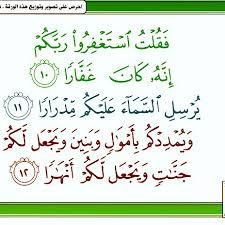 احرص على تصوير وتوزيع هذه الورقة .
فَقُلْتُ ٱسْتَغْفِرُوا۟ رَبَّكُمْ
إِنَّهُۥ كَانَ غَفَّارًا ﴿١٠﴾
يُرْسِلِ ٱلسَّمَآءَ عَلَيْكُم مِّدْرَارًا ﴿١١﴾
وَيُمْدِدْكُم بِأَمْوَٰلٍ وَبَنِينَ وَيَجْعَل لَّكُمْ
جَنَّٰتٍ وَيَجْعَل لَّكُمْ أَنْهَٰرًا ﴿١٢﴾